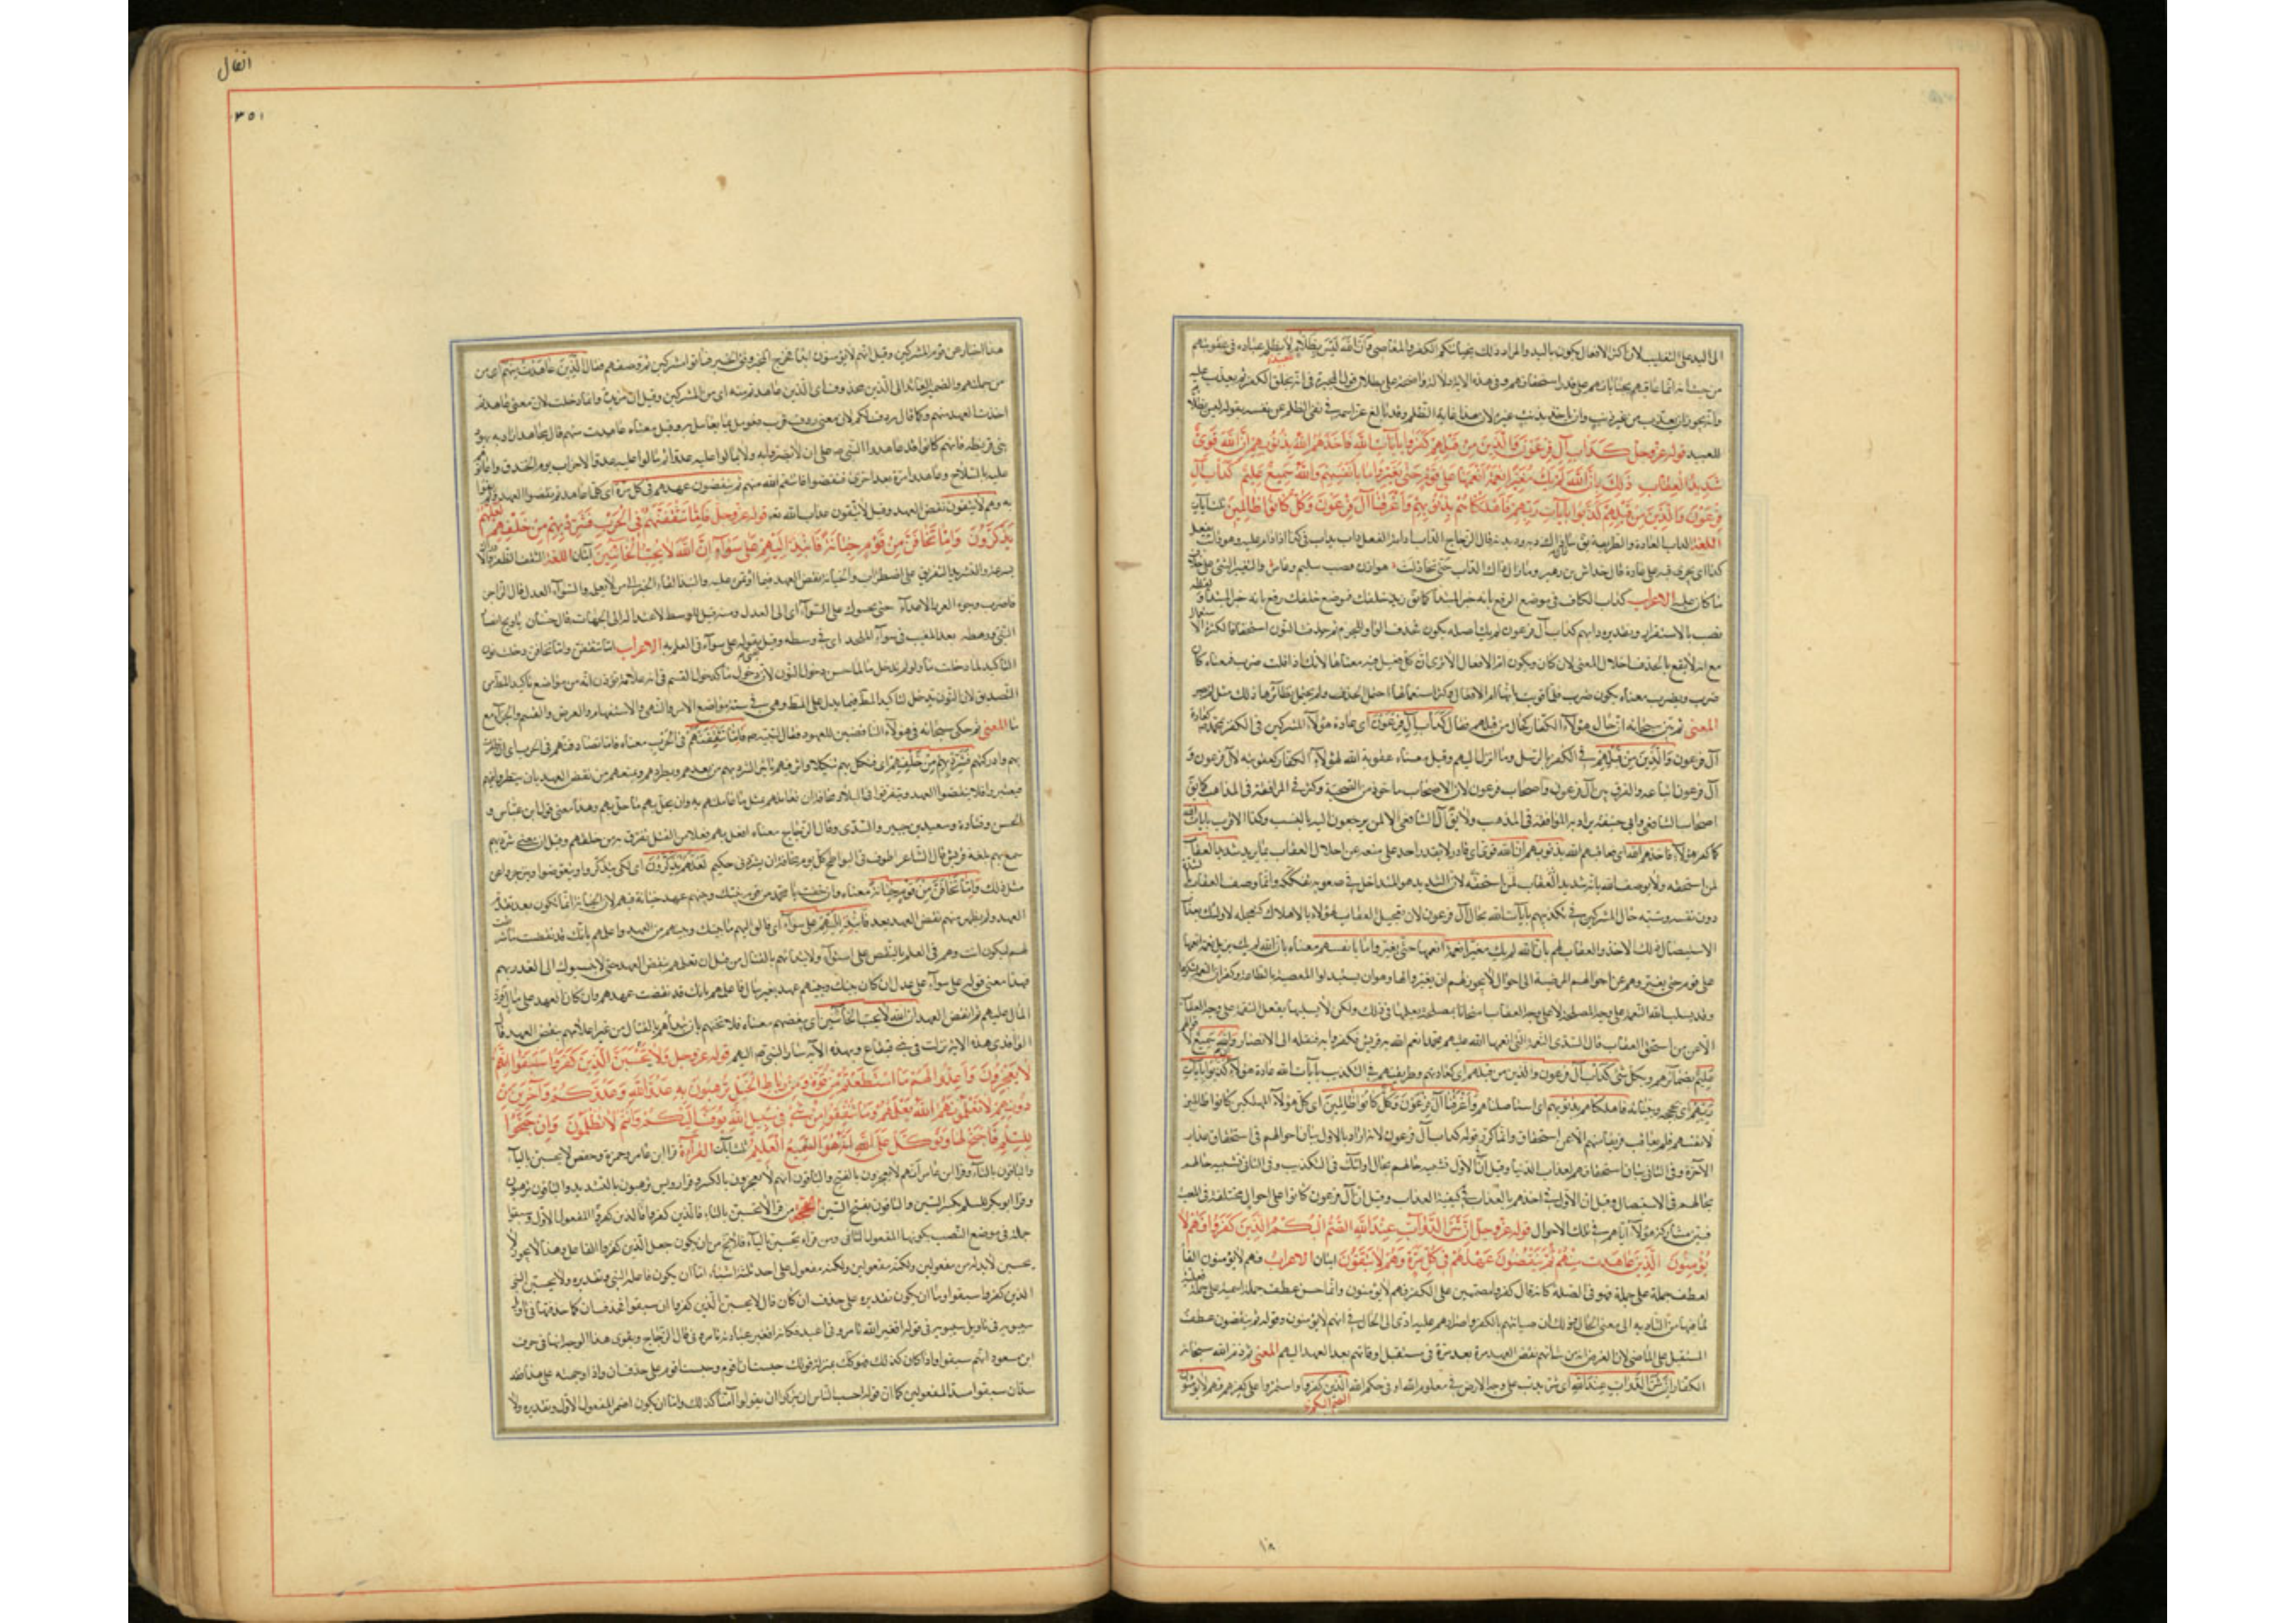 الى اليد على التغليب لان اكثر الافعال يكون باليد والمراد ذلك بجنايتكم الكفر والمعاصى وَاَنَّ اللهَ لَيْسَ بِظَلّامٍ لا يظلم عباده فى عقوبتهم
من حيث انه انما عاقبهم بجناياتهم على قدر استحقاقهم وفى هذه الاية دلالة واضحة على بطلان قول المجبرة فى انه يخلق الكفر ثم يعذب عليه
وانه يجوز ان يعذب من غير ذنب وان ياخذ بذنب غيره لان هذا غاية الظلم وقد بالغ عز اسمه فى نفى الظلم عن نفسه بقوله ليس بظلام
للعبيد قوله عز وجل كَدَأبِ آلِ فِرعَونَ وَالَّذينَ مِن قَبلِهِم كَفَروا بِآياتِ اللهِ فَاَخَذَهُمُ اللهُ بِذُنوبِهِم اِنَّ اللهَ قَوِىٌّ
شَديدُ العِقابِ ذلِكَ بِاَنَّ اللهَ لَم يَكُ مُغَيِّراً نِعمَةً اَنعَمَها عَلى قَومٍ حَتّى يُغَيِّروا ما بِاَنفُسِهِم وَاَنَّ اللهَ سَميعٌ عَليمٌ كَدَأبِ آلِ
فِرعَونَ وَالَّذينَ مِن قَبلِهِم كَذَّبوا بِآياتِ رَبِّهِم فَاَهلَكناهُم بِذُنوبِهِم وَاَغرَقنا آلَ فِرعَونَ وَكُلٌّ كانوا ظالِمينَ ثلث آيات
اللغة الداب العادة والطريقة
كذا اى يجرى فيه على عادة قال خداش بن زهير وما زال ذاك الداب حتى تخاذلت هوازن
ما كان عليه الاعراب كداب الكاف فى موضع الرفع بانه خبر المبتدا كما تقول زيد خلفك فموضع خلفك رفع بانه خبر المبتدا
نصب بالاستقرار وتقديره دابهم كداب آل فرعون لم يك اصله يكون فحذف الواو للجزم ثم حذف النون استخفافا لكثرة
مع انه لا يقع بالحذف اخلال بالمعنى لان كان ويكون ام الافعال الا ترى ان كل فعل فيه معناها لانك اذا قلت ضرب فمعناه كان
ضرب ويضرب معناه يكون ضرب فلما قويت بانها ام الافعال وكثر استعمالها احتمل الحذف ولم يحتمل نظائرها ذلك
المعنى ثم بين سبحانه ان حال هؤلاء الكفار كحال من قبلهم فقال كَدَأبِ آلِ فِرعَونَ اى عادة هؤلاء المشركين فى الكفر بمحمد كعادة
آل فرعون وَالَّذينَ مِن قَبلِهِم فى الكفر بالرسل وما انزل اليهم وقيل معناه عقوبة الله لهؤلاء الكفار كعقوبته لآل فرعون و
آل فرعون اتباعه والفرق بين آل فرعون واصحاب فرعون لان الاصحاب ماخوذ من الصحبة وكثر فى الموافقة فى المذاهب كما يق
اصحاب الشافعى وابى حنيفة يراد به الموافقة فى المذهب ولا يق آل الشافعى الا لمن يرجعون اليه بالنسب
كما كفر هؤلاء فَاَخَذَهُمُ اللهُ اى فعاقبهم الله بذنوبهم اِنَّ اللهَ قَوِىٌّ اى قادر لا يقدر احد على منعه من احلال العقاب بما يريد شديد العقاب
لمن استحقه ولا يوصف الله بانه شديد العقاب لمن استحقه لان الشديد هو المتداخل فى صعوبة تفككه وانما وصف العقاب
دون نفسه وشبه حال المشركين فى تكذيبهم بآيات الله بحال آل فرعون لان تعجيل العقاب لهؤلاء بالاهلاك كتعجيله لاولئك بعذاب
الاستيصال ذلك الاخذ والعقاب لهم بان الله لم يك مغيرا نعمة انعمها حتى يغيروا ما بانفسهم معناه بان الله لم يك يزيل نعمة انعمها
على قوم حتى يغيروهم عن احوالهم المرضية الى احوال لا يجوز لهم ان يغيروها وهو ان يستبدلوا المعصية بالطاعة وكفران النعمة بشكرها
وقد يسلب الله النعمة على وجه المصلحة لا على وجه العقاب امتحانا بمصلحة يعلمها فى ذلك ولكن لا يسلبها بفعل النقمة على وجه العقاب
الا عن من استحق العقاب قال السدى النعمة التى انعمها الله عليهم محمد انعم الله به على قريش فكفروا به فنقله الى الانصار
عَليمٌ بضمائرهم وبكل شئ كداب آل فرعون والذين من قبلهم اى كعادتهم وطريقتهم فى التكذيب بآيات الله عادة هؤلاء كَذَّبوا بِآياتِ
رَبِّهِم اى بحججه وبيناته فاهلكناهم بذنوبهم اى استاصلناهم وَاَغرَقنا آلَ فِرعَونَ وَكُلٌّ كانوا ظالِمينَ اى كل هؤلاء المهلكين كانوا ظالمين
لانفسهم فلم يعاقب فريقا منهم الا عن استحقاق وانما كرر قوله كداب آل فرعون لانه اراد بالاول بيان احوالهم فى استحقاق عذاب
الآخرة وفى الثانى بيان استحقاقهم لعذاب الدنيا وقيل ان الاول تشبيه حالهم بحال اولئك فى التكذيب وفى الثانى تشبيه حالهم
بحالهم فى الاستيصال وقيل ان الاول فى اخذهم بالعذاب فى كيفية العذاب وقيل ان آل فرعون كانوا على احوال مختلفة فى المعصية
فبين مشاركة هؤلاء اياهم فى تلك الاحوال قوله عز وجل اِنَّ شَرَّ الدَّوابِّ عِندَ اللهِ الصُّمُّ البُكمُ الَّذينَ كَفَروا فَهُم لا
يُؤمِنونَ الَّذينَ عاهَدتَ مِنهُم ثُمَّ يَنقُضونَ عَهدَهُم فى كُلِّ مَرَّةٍ وَهُم لا يَتَّقونَ ايتان الاعراب فهم لا يؤمنون الفا
لعطف جملة على جملة وهو فى الصلة كانه قال كفروا مصممين على الكفر فهم لا يؤمنون وانما حسن عطف جملة اسمية على جملة فعلية
لما فيها من التاديه الى معنى الحال وذلك ان صباتهم بالكفر واصرارهم عليه ادى الى الحال فى انهم لا يؤمنون وقوله ثم ينقضون عطف
المستقبل على الماضى لان الغرض ان من شانهم نقض العهد مرة بعد مرة فى مستقبل اوقاتهم بعد العهد اليهم المعنى ثم ذم الله سبحانه
الكفار اِنَّ شَرَّ الدَّوابِّ عِندَ اللهِ اى شر من يدب على وجه الارض فى معلوم الله او فى حكم الله الَّذينَ كَفَروا واستمروا على كفرهم فهم لا يؤمنون
الصم البكم
١٨
انفال
٣٥١
هذا اخبار عن قوم من المشركين وقيل انهم لا يؤمنون ثم وصفهم فقال الَّذينَ عاهَدتَ مِنهُم اى من
من جملتهم والضمير العائد الى الذين محذوف اى الذين عاهدتهم منه اى من المشركين وقيل ان من مزيدة وانما دخلت لان معنى عاهدتم
اخذت العهد منهم وكما قال ردف لكم لان معنى ردف قرب وقيل معناه عاهدت منهم قال مجاهد اراد به يهود
بنى قريظة فانهم كانوا قد عاهدوا النبى ص على ان لا يضروا به ولا يمالوا عليه عدوا ثم مالوا عليه عدوا الاحزاب يوم الخندق واعانوهم
عليه بالسلاح وعاهدوا مرة بعد اخرى فنقضوا فانتقم الله منهم ثُمَّ يَنقُضونَ عَهدَهُم فى كُلِّ مَرَّةٍ اى كلما عاهدتم نقضوا العهد ولم يفوا
به وهم لا يتقون نقض العهد وقيل لا يتقون عذاب الله تعـ قوله عز وجل فَاِمّا تَثقَفَنَّهُم فِى الحَربِ فَشَرِّد بِهِم مَن خَلفَهُم لَعَلَّهُم
يَذَّكَّرونَ وَاِمّا تَخافَنَّ مِن قَومٍ خِيانَةً فَانبِذ اِلَيهِم عَلى سَواءٍ اِنَّ اللهَ لا يُحِبُّ الخائِنينَ آيتان اللغة الثقف الظفر والادراك
بسرعة والتشريد التفريق على اضطراب والخيانة نقض العهد فيما اؤتمن عليه والنبذ القاء الخبر الى من لا يعلمه والسواء العدل قال الراجز
فاضرب وجوه الغدر الاعداء حتى يجيبوك على السواء اى الى العدل ومنه قيل للوسط لاعتداله الى الجهات قال حسان يا ويح انصار
النبى ورهطه بعد المغيب فى سواء الملحد اى فى وسطه وقيل بقوله على سواء فى العلم به الاعراب اما تثقفن واما تخافن دخلت نون
التاكيد لما دخلت ما ولو لم يدخل ما لما حسن دخول النون لان دخول ما كدخول القسم فى انه علامة تؤذن انه من مواضع تاكيد المط من
التصديق لان النون تدخل لتاكيد المط فيما يدل على المط وهى فى ستة مواضع الامر والنهى والاستفهام والعرض والقسم والجزاء مع
ما المعنى ثم حكم سبحانه فى هؤلاء الناقضين للعهود فقال لنبيه ص فَاِمّا تَثقَفَنَّهُم فِى الحَربِ معناه فاما تصادفنهم فى الحرب اى ظفرت
بهم وادركتهم فَشَرِّد بِهِم مَن خَلفَهُم اى فنكل بهم تنكيلا واثر فيهم تاثيرا تشرد بهم من بعدهم وتطردهم وتمنعهم من نقض العهد بان ينظروا فيهم
فيعتبروا فلا ينقضوا العهد ويتفرقوا فى البلاد مخافة ان تعاملهم بمثل ما عاملتهم به وان يحل بهم ما حل بهم وهذا معنى قول ابن عباس و
الحسن وقتادة وسعيد بن جبير والسدى وقال الزجاج معناه افعل بهم فعلا من القتل تفرق به من خلفهم وقيل ان معنى شرد بهم
سمع بهم بلغة قريش قال الشاعر اطوف فى الاباطح كل يوم مخافة ان يشرد بى حكيم لَعَلَّهُم يَذَّكَّرونَ اى لكى يتذكروا ويتعظوا وينزجروا عن
مثل ذلك وَاِمّا تَخافَنَّ مِن قَومٍ خِيانَةً معناه وان خفت يا محمد من قوم بينك وبينهم عهد خيانة فيهم لان الخيانة انما تكون بعد تقدم
العهد ولم يظهر منهم نقض العهد بعد فَانبِذ اِلَيهِم عَلى سَواءٍ اى فالق اليهم ما بينك وبينهم من العهد واعلمهم بانك قد نقضت ما شرطت
لهم ليكون انت وهم فى العلم بالنقض على استواء ولا تبداهم بالقتال من قبل ان تعلمهم بنقض العهد حتى لا ينسبوك الى الغدر بهم
فهذا معنى قوله على سواء على عدل ان كان بينك وبينهم عهد بغير مال فاعلمهم بانك قد نقضت عهدهم وان كان العهد على مال فرد
المال عليهم ثم انقض العهد اِنَّ اللهَ لا يُحِبُّ الخائِنينَ اى يبغضهم معناه فلا تخنهم بان تبداهم بالقتال من غير اعلامهم بنقض العهد قال
الواقدى هذه الاية نزلت فى بنى قينقاع وبهذه الآية سار النبى ص اليهم قوله عز وجل وَلا يَحسَبَنَّ الَّذينَ كَفَروا سَبَقوا اِنَّهُم
لا يُعجِزونَ وَاَعِدّوا لَهُم مَا استَطَعتُم مِن قُوَّةٍ وَمِن رِباطِ الخَيلِ تُرهِبونَ بِهِ عَدُوَّ اللهِ وَعَدُوَّكُم وَآخَرينَ مِن
دونِهِم لا تَعلَمونَهُمُ اللهُ يَعلَمُهُم وَما تُنفِقوا مِن شَىءٍ فى سَبيلِ اللهِ يُوَفَّ اِلَيكُم وَاَنتُم لا تُظلَمونَ وَاِن جَنَحوا
لِلسَّلمِ فَاجنَح لَها وَتَوَكَّل عَلَى اللهِ اِنَّهُ هُوَ السَّميعُ العَليمُ ثلث آيات القراءة قرا ابن عامر وحمزة وحفص لا يحسبن بالياء
والباقون بالتاء وقرا ابن عامر انهم لا يعجزون بالفتح والباقون انهم لا يعجزون بالكسر وقرا رويس ترهبون بالتشديد والباقون ترهبون
وقرا ابو بكر للسلم بكسر السين والباقون بفتح السين الحجة من قرا لا تحسبن بالتاء فالذين كفروا المفعول الاول وسبقوا
جملة فى موضع النصب بكونها المفعول الثانى ومن قراه يحسبن بالياء فلا يخ من ان يكون جعل الذين كفروا الفاعل وهذا لا يجوز لا
يحسبن لابد له من مفعولين ولكنه مفعول على احد ثلثة اشياء اما ان يكون فاعله النبى وتقديره ولا يحسبن النبى
الذين كفروا سبقوا واما ان يكون تقديره على حذف ان كان قال لا يحسبن الذين كفروا ان سبقوا فحذف ان كما حذفها فى تاول
سيبويه فى تاويل سيبويه فى قوله افغير الله تامرونى اعبد فكانه افغير عبادة تامرونى قال الزجاج ويقوى هذا الوجه انها فى حرف
ابن مسعود انهم سبقوا واذا كان كذلك فهو كله بمنزلة قولك حسبت ان اقوم وحسبت اقوم على حذف ان واذا وجهته على هذا فقد
ستان سبقوا مسد المفعولين كما ان قوله احسب الناس ان يتركوا ان يقولوا آمنا كذلك واما ان يكون اضمر المفعول الاول وتقديره ولا